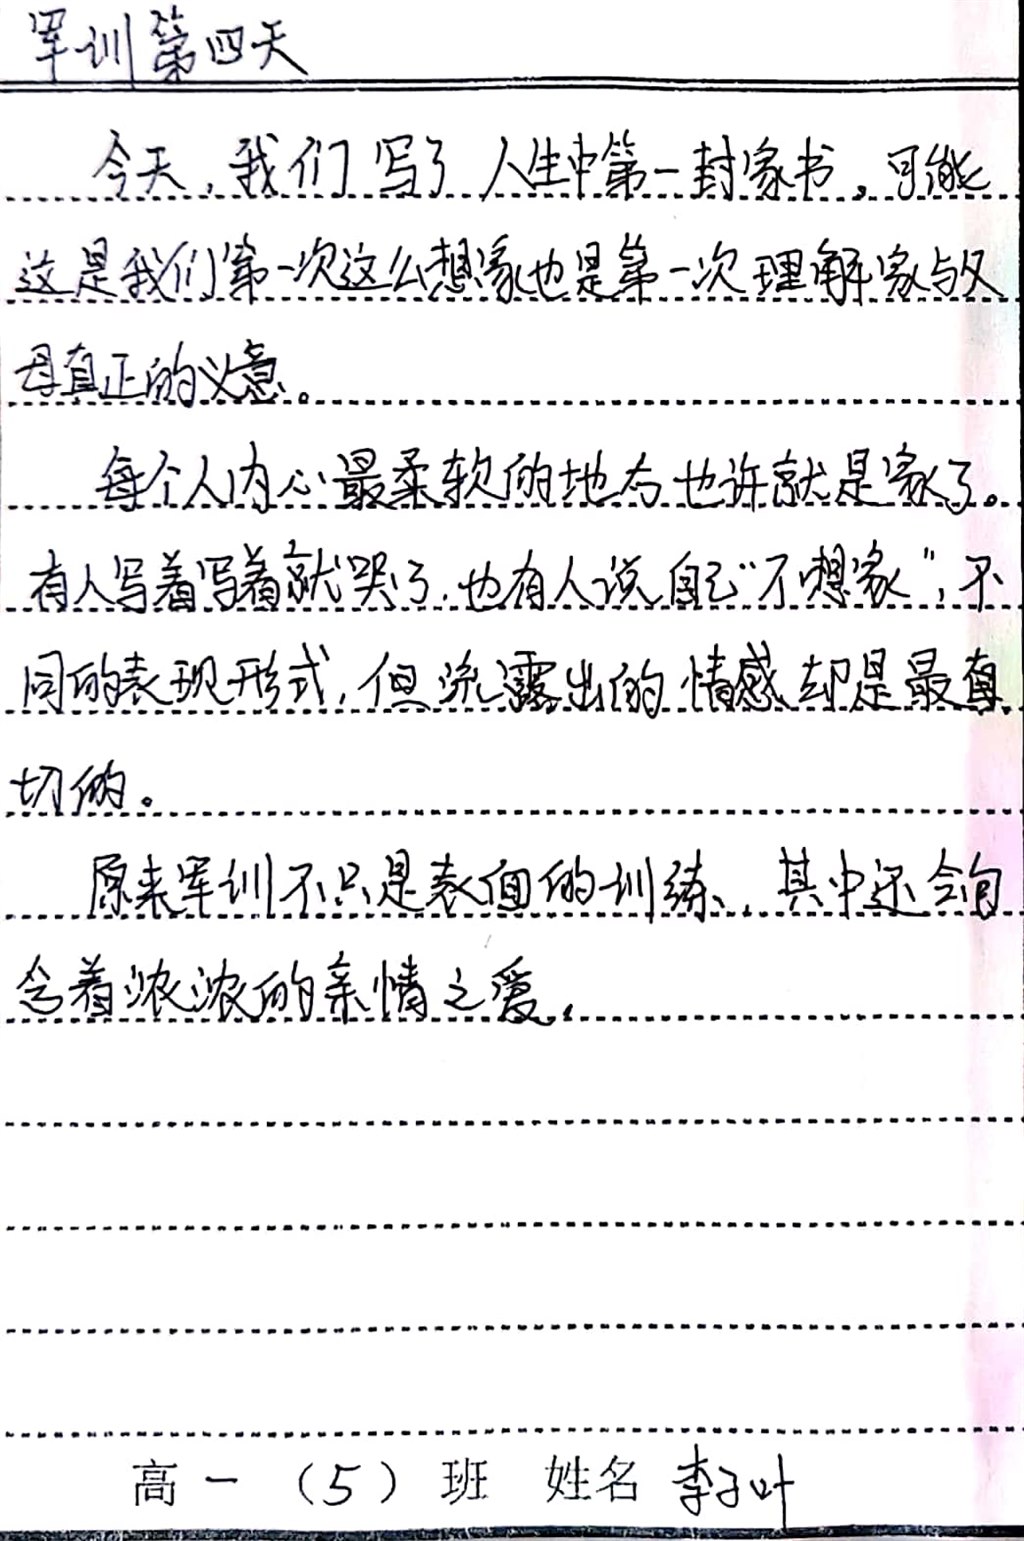 军训第四天
今天，我们写了人生中第一封家书，可能
这是我们第一次这么想家也是第一次理解家与父
母真正的义意。
每个人内心最柔软的地方也许就是家了。
有人写着写着就哭了，也有人说自己“不想家”，不
同的表现形式，但流露出的情感却是最真
切的。
原来军训不只是表面的训练，其中还会包
含着浓浓的亲情之爱，
高一（5）班 姓名 李子叶